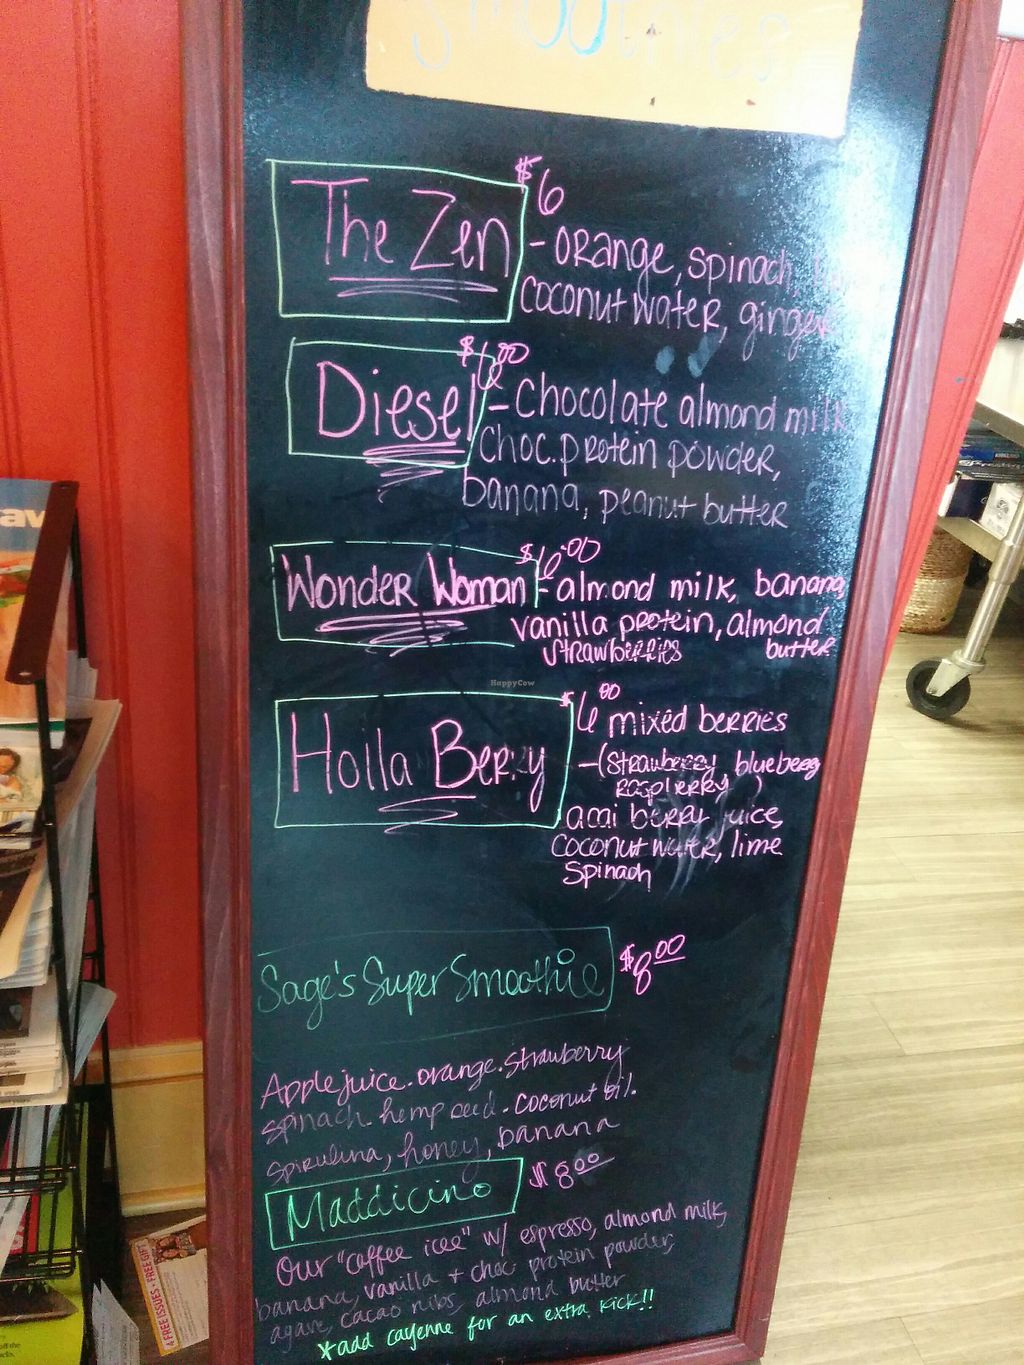 Smoothies
The Zen
$6
- orange, spinach,
coconut water, ginger
Diesel
$6.00
- Chocolate almond milk
Choc. protein powder,
banana, peanut butter
Wonder Woman
$6.00
- almond milk, banana,
vanilla protein, almond
butter
strawberries
Holla Berry
$6.00
mixed berries
- (strawberry blueberry
raspberry)
acai berry juice,
coconut water, lime
Spinach
Sage's Super Smoothie
$8.00
Apple juice. orange. strawberry
spinach. hemp seed. coconut oil.
spirulina, honey, banana
Maddicino
$8.00
Our "coffee icee" w/ espresso, almond milk,
banana, vanilla + choc protein powder,
agave, cacao nibs, almond butter
*add cayenne for an extra kick!!
HappyCow
4 FREE ISSUES + FREE GIFT